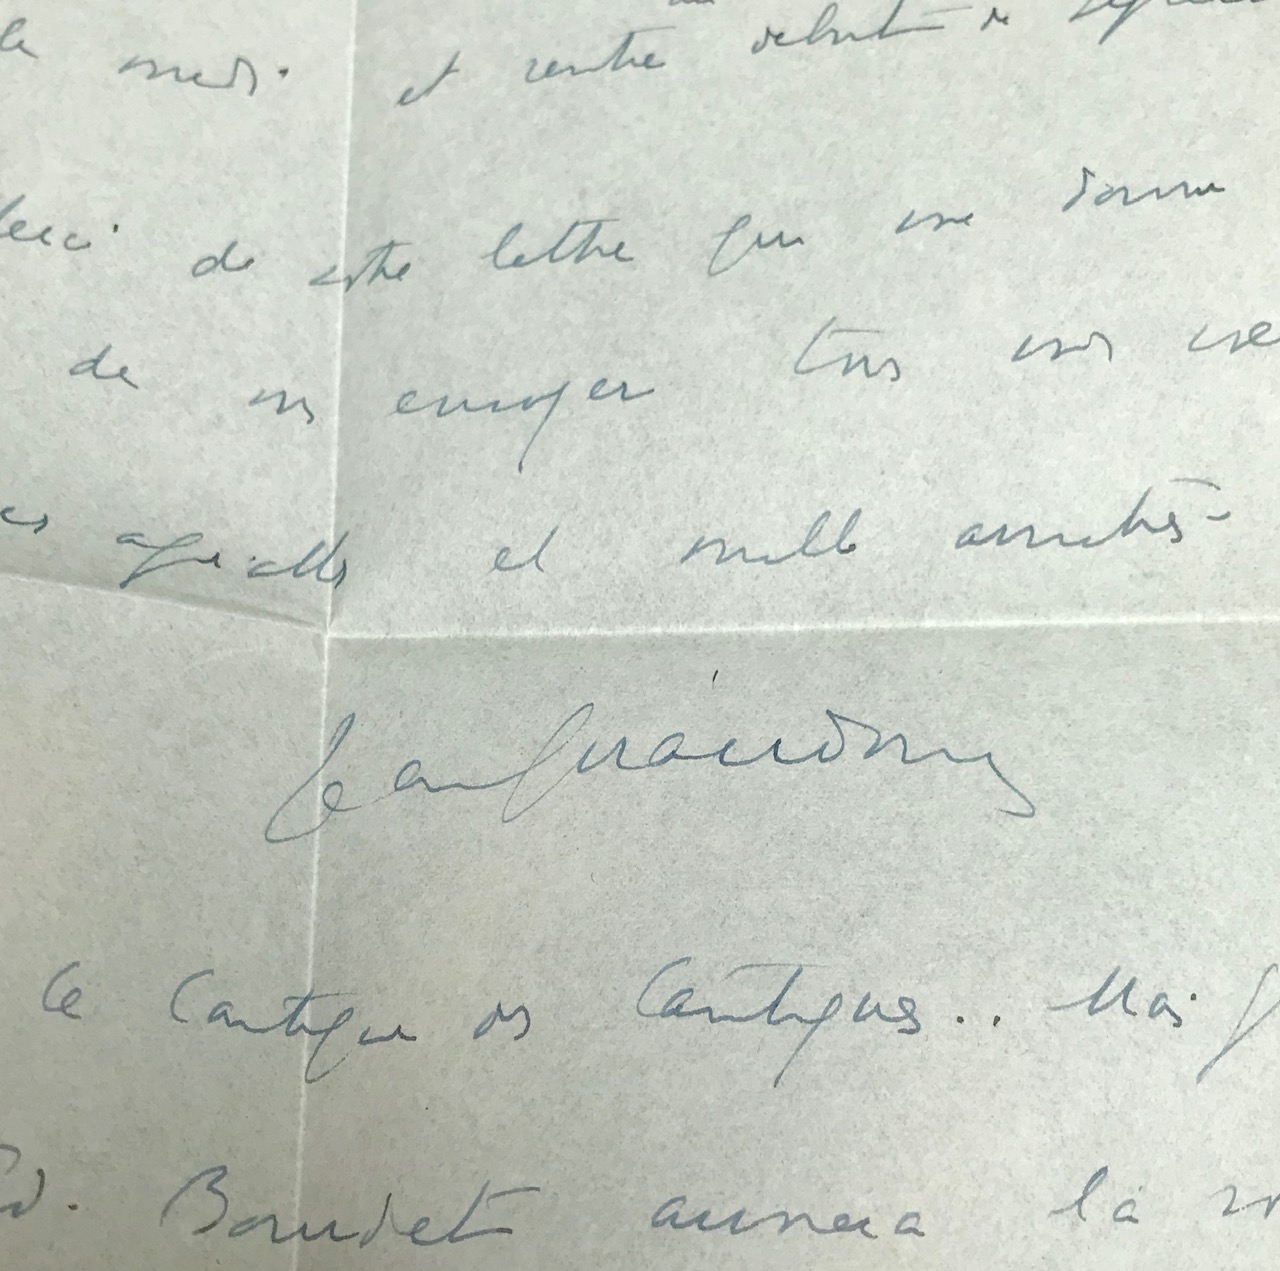 le midi. et rentre début de
Merci de votre lettre qui me donne
de vs envoyer tous mes
et mille amitiés -
Jean Giraudoux
Le Cantique des Cantiques.. Mais
Ed. Bourdet aimera la